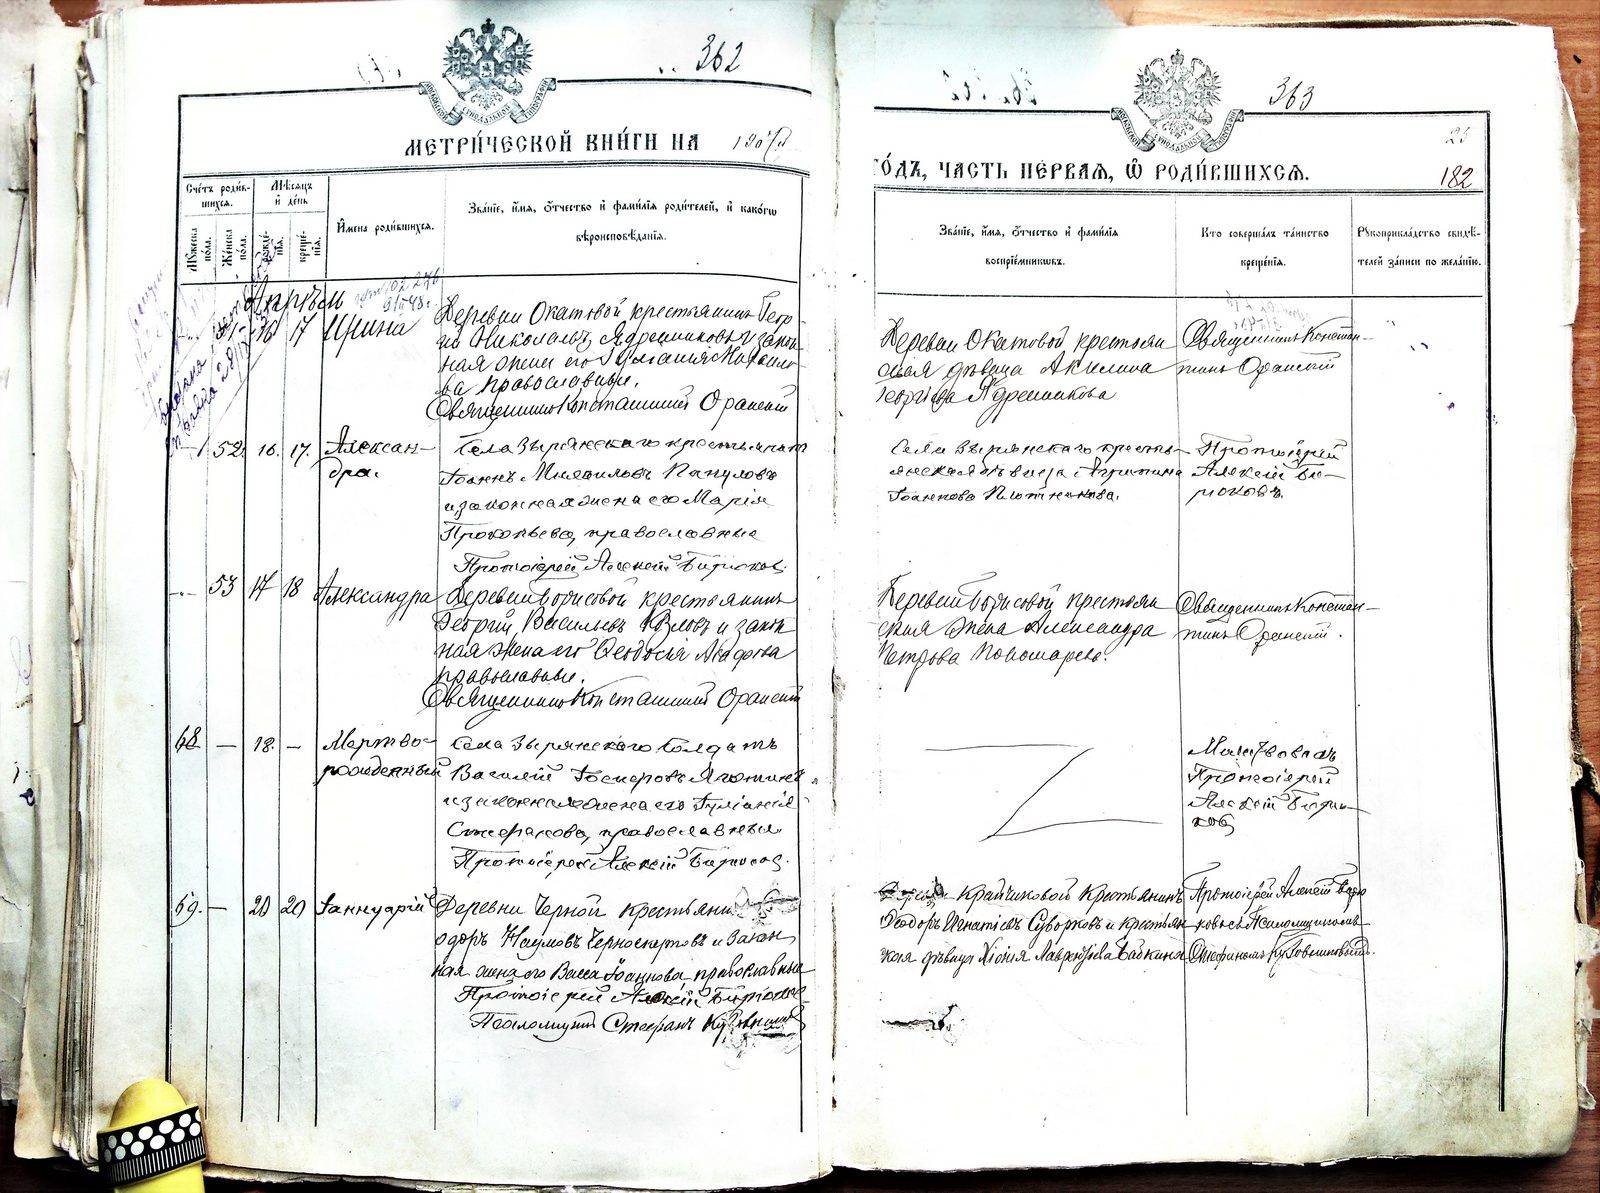 362
МЕТРИ́ЧЕСКОЙ КНИ́ГИ НА
Сче́тъ роди́в-
шихся.
Мѣсяцъ
и де́нь
Мꙋжеска
по́ла.
Же́нска
по́ла.
рожде́-
нїя.
креще́-
нїя.
И́мена роди́вшихся.
Зва́нїе, и́мя, о́тчество и фами́лїя роди́телей, и како́гѡ
вѣроисповѣ́данїя.
Апрѣль
16 17 Ирина
Деревни Окатовой крестьянинъ Геор-
гій Николаевъ Ядрешниковъ и закон-
ная жена его
ва православные.
Священникъ Константинъ Оранскій
52. 16. 17. Алексан-
дра.
Села Зырянскаго крестьянинъ
Іоаннъ Михаиловъ Пачуловъ
и законная жена его Марія
Прокопьева, православные
Протоіерей Алексій Бирюковъ.
53 17 18 Александра
Деревни Борисовой крестьянинъ
Георгій Васильевъ Козловъ и закон
ная жена его Ѳеодосія
православные.
Священникъ Константинъ Оранскій
68 — 18. — Мертво-
рожденный
Села Зырянскаго Солдатъ
Василій
и законная жена его Іуліанія
Стефанова, православные
Протоіерей Алексій Бирюковъ.
69. — 20 20 Іаннуарій
Деревни Черной крестьянинъ
одоръ Наумовъ Черноскутовъ и Закон
ная жена его Васса Іоаннова, православные
Протоіерей Алексій Бирюковъ
Псаломщикъ Стефанъ
363
25
ГО́ДЪ, ЧАСТЬ ПЕ́РВАЯ, Ѡ РОДИ́ВШИХСЯ.
182
Зва́нїе, и́мя, о́тчество и фами́лїя
воспрїе́мниковъ.
Кто соверша́лъ та́инство
креще́нїя.
Рꙋкоприкла́дство свидѣ́-
телей за́писи по жела́нїю.
Деревни Окатовой крестьян
ская дѣвица Акилина
Георгіева Ядрешникова
Священникъ Констан-
тинъ Оранскій
Села Зырянскаго кресть-
янская дѣвица Агрипина
Іоаннова Плотникова.
Протоіерей
Алексій Би-
рюковъ.
Деревни Борисовой крестьян
ская жена Александра
Петрова Пономарева.
Священникъ Констан-
тинъ Оранскій.
Протоіерей
Алексій Бирю-
ковъ
Крайчиковой Крестьянинъ
Ѳеодоръ Игнатіевъ Суворковъ и крестьян
ская дѣвица Хіонія Лаврентіева Бабкина
Протоіерей Алексій Бирю
ковъ съ Псаломщикомъ
Стефаномъ